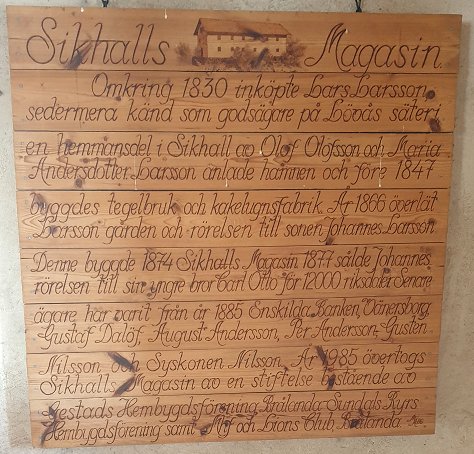 Sikhalls Magasin.
Omkring 1830 inköpte Lars Larsson,
sedermera känd som godsägare på Lövås säteri
en hemmansdel i Sikhall av Olof Olofsson och Maria
Andersdotter. Larsson anlade hamnen och före 1847
byggdes tegelbruk och kakelugnsfabrik. År 1866 överlät
Larsson gården och rörelsen till sonen Johannes Larsson.
Denne byggde 1874 Sikhalls Magasin. 1877 sålde Johannes
rörelsen till sin yngre bror Carl Otto för 12000 riksdaler. Senare
ägare har varit från år 1885 Enskilda Banken, Vänersborg,
Gustaf Dalöf, August Andersson, Per Andersson, Gusten
Nilsson och Syskonen Nilsson. År 1985 övertogs
Sikhalls Magasin av en stiftelse bestående av
Gestads Hembygdsförening, Brålanda-Sundals Ryrs
Hembygdsförening samt och Lions Club, Brålanda.